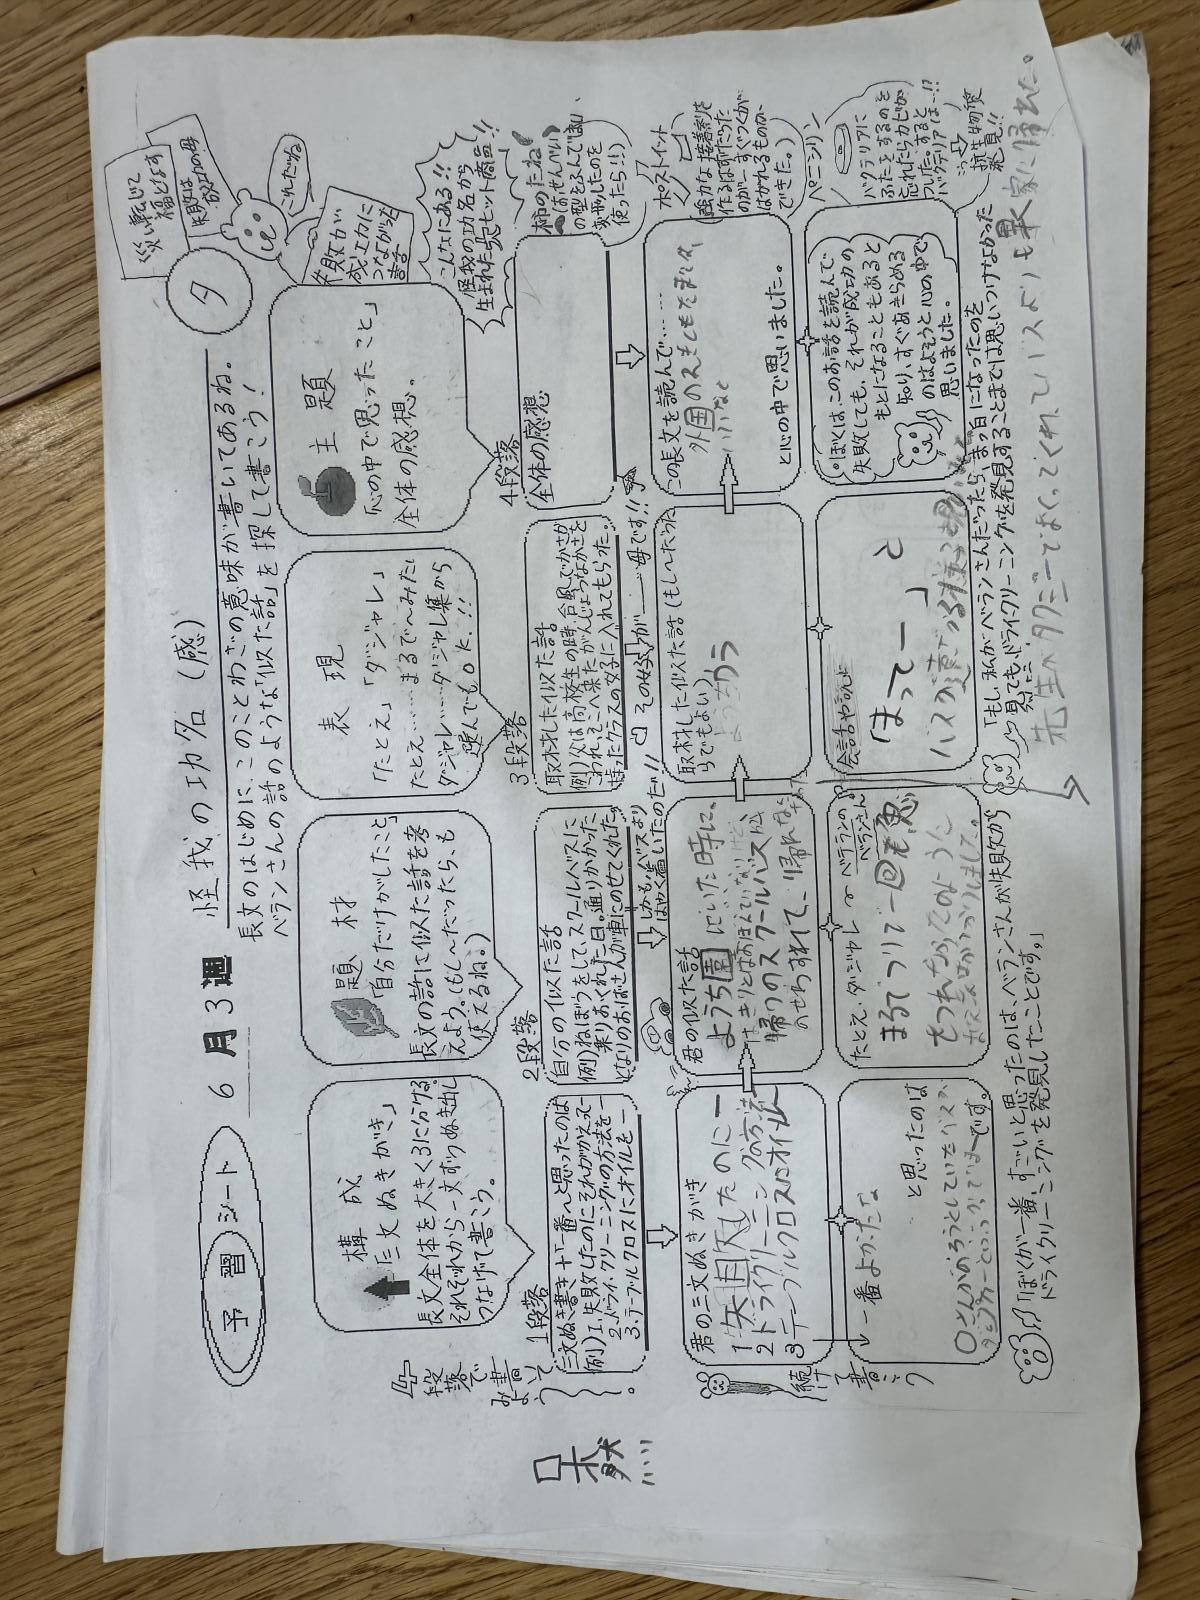 予習シート 6月3週 怪我の功名(感) タ
長文のはじめに、このことわざの意味が書いてあるね。
ベランさんの話のような「似た話」を探して書こう!
災い転じて
福となす
失敗は
成功の母
これだね
失敗が
成功に
つながった
話
構成
「三文ぬきがき」
長文全体を大きく3に分ける。
それぞれから一文ずつぬき出し
つなげて書こう。
題材
「自分だけがしたこと」
長文の話に似た話を考
えよう。(もし〜だったら、も
使えるね。)
表現
「たとえ」「ダジャレ」
たとえ……まるで〜みたい
ダジャレ……ダジャレ集から
選んでもOK!!
主題
「心の中で思ったこと」
全体の感想。
こんなにある!!
怪我の功名から
生まれた大ヒット商品!!
4段落で書いてみよう。
1段落
三文ぬき書き+「一番〜と思ったのは
例)1.失敗したのにそれがかえって
2.ドライ・クリーニングの方法を
3.テーブルクロスにオイルを
2段落
自分の似た話
例)ねぼうをして、スクールバスに
乗りおくれた日。通りかかった
となりのおばさんが車にのせてくれた。
しかも!バスより
はやく着いたのだ!!
3段落
取材した似た話
例)父は高校生の時、台風でかさが
こわれ、そこへ来たがんじょうなかさを
持ったクラスの女子に入れてもらった。
その女子が 母です!!
4段落
全体の感想
柿のたね
(小判せんべい
の型をふんでしまい、
変形したのを
使ったら!!)
君の三文ぬきがき
1 失敗したのにー
2 ドライクリーニングの方法
3 テーブルクロスにオイル
君の似た話
ようち園にいた時に、
はっきりとはおぼえていないけど、
帰りのスクールバスに
のせわすれて、帰れな
取材した似た話(もし〜だったら
らでもよい)
この長文を読んで……
外国の人も
いいなと
と心の中で思いました。
ポストイット
(強力な接着剤を
作るはずだった
のが…すぐつくが
はがれるものが
できた。)
続けて書こう
一番よかったな
と思ったのは
です。
たとえ、ダジャレ 〜ベテランの
ベランさん〜
まるでつりで一回も魚
がつれなくて
会話や説と
「まってー」と
バスの
「ぼくは、このお話を読んで
失敗しても、それが成功の
もとになることもあると
知り、すぐあきらめる
のはよそうと心の中で
思いました。
ペニシリン
バクテリアに
ふたをするのを
忘れたらカビが
ついた。すると
バクテリアは…!!
抗生物質
発見!!
「ぼくが一番、すごいと思ったのは、ベランさんが失敗から
ドライクリーニングを発見したことです。」
「もし、私がベランさんだったら、まっ白になったのを
見ても、ドライクリーニングを発見することまでは思いつけなかった
先生がタクシーでおくってくれてバスよりも早く家に帰れた。